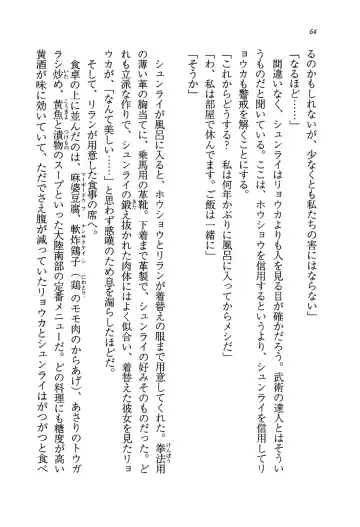 64
るのかもしれないが、少なくとも私たちの害にはならない」
「なるほど……」
間違いなく、シュンライはリョウカよりも人を見る目が確かだろう。武術の達人とはそう
いうものだと聞いている。ここは、ホウショウを信用するというより、シュンライを信用してリ
ョウカも警戒を解くことにする。
「これからどうする？　私は何年かぶりに風呂に入ってからメシだ」
「わ、私は部屋で休んでます。ご飯は一緒に」
「そうか」
シュンライが風呂に入ると、ホウショウとリランが着替えの服まで用意してくれた。拳法用
けんぽう
の薄い革の胸当てに、乗馬用の革靴。下着まで革製で、シュンライの好みそのものだった。ど
れも立派な作りで、シュンライの鍛え抜かれた肉体にはよく似合い、着替えた彼女を見たリョ
きた
ウカが、「なんて美しい……」と思わず感嘆のため息を漏らしたほどだ。
そして、リランが用意した食事の席へ。
食卓の上に並んだのは、麻婆豆腐、軟炸鶏子（鶏のモモ肉のからあげ）、あさりのトウガ
マーボードウフ
にわとり
ラシ炒め、黄魚と漬物のスープといった大陸南部の定番メニューだ。どの料理にも糖度が高い
いた
つけもの
黄酒が味に効いていて、ただでさえ腹が減っていたリョウカとシュンライはがつがつと食べ